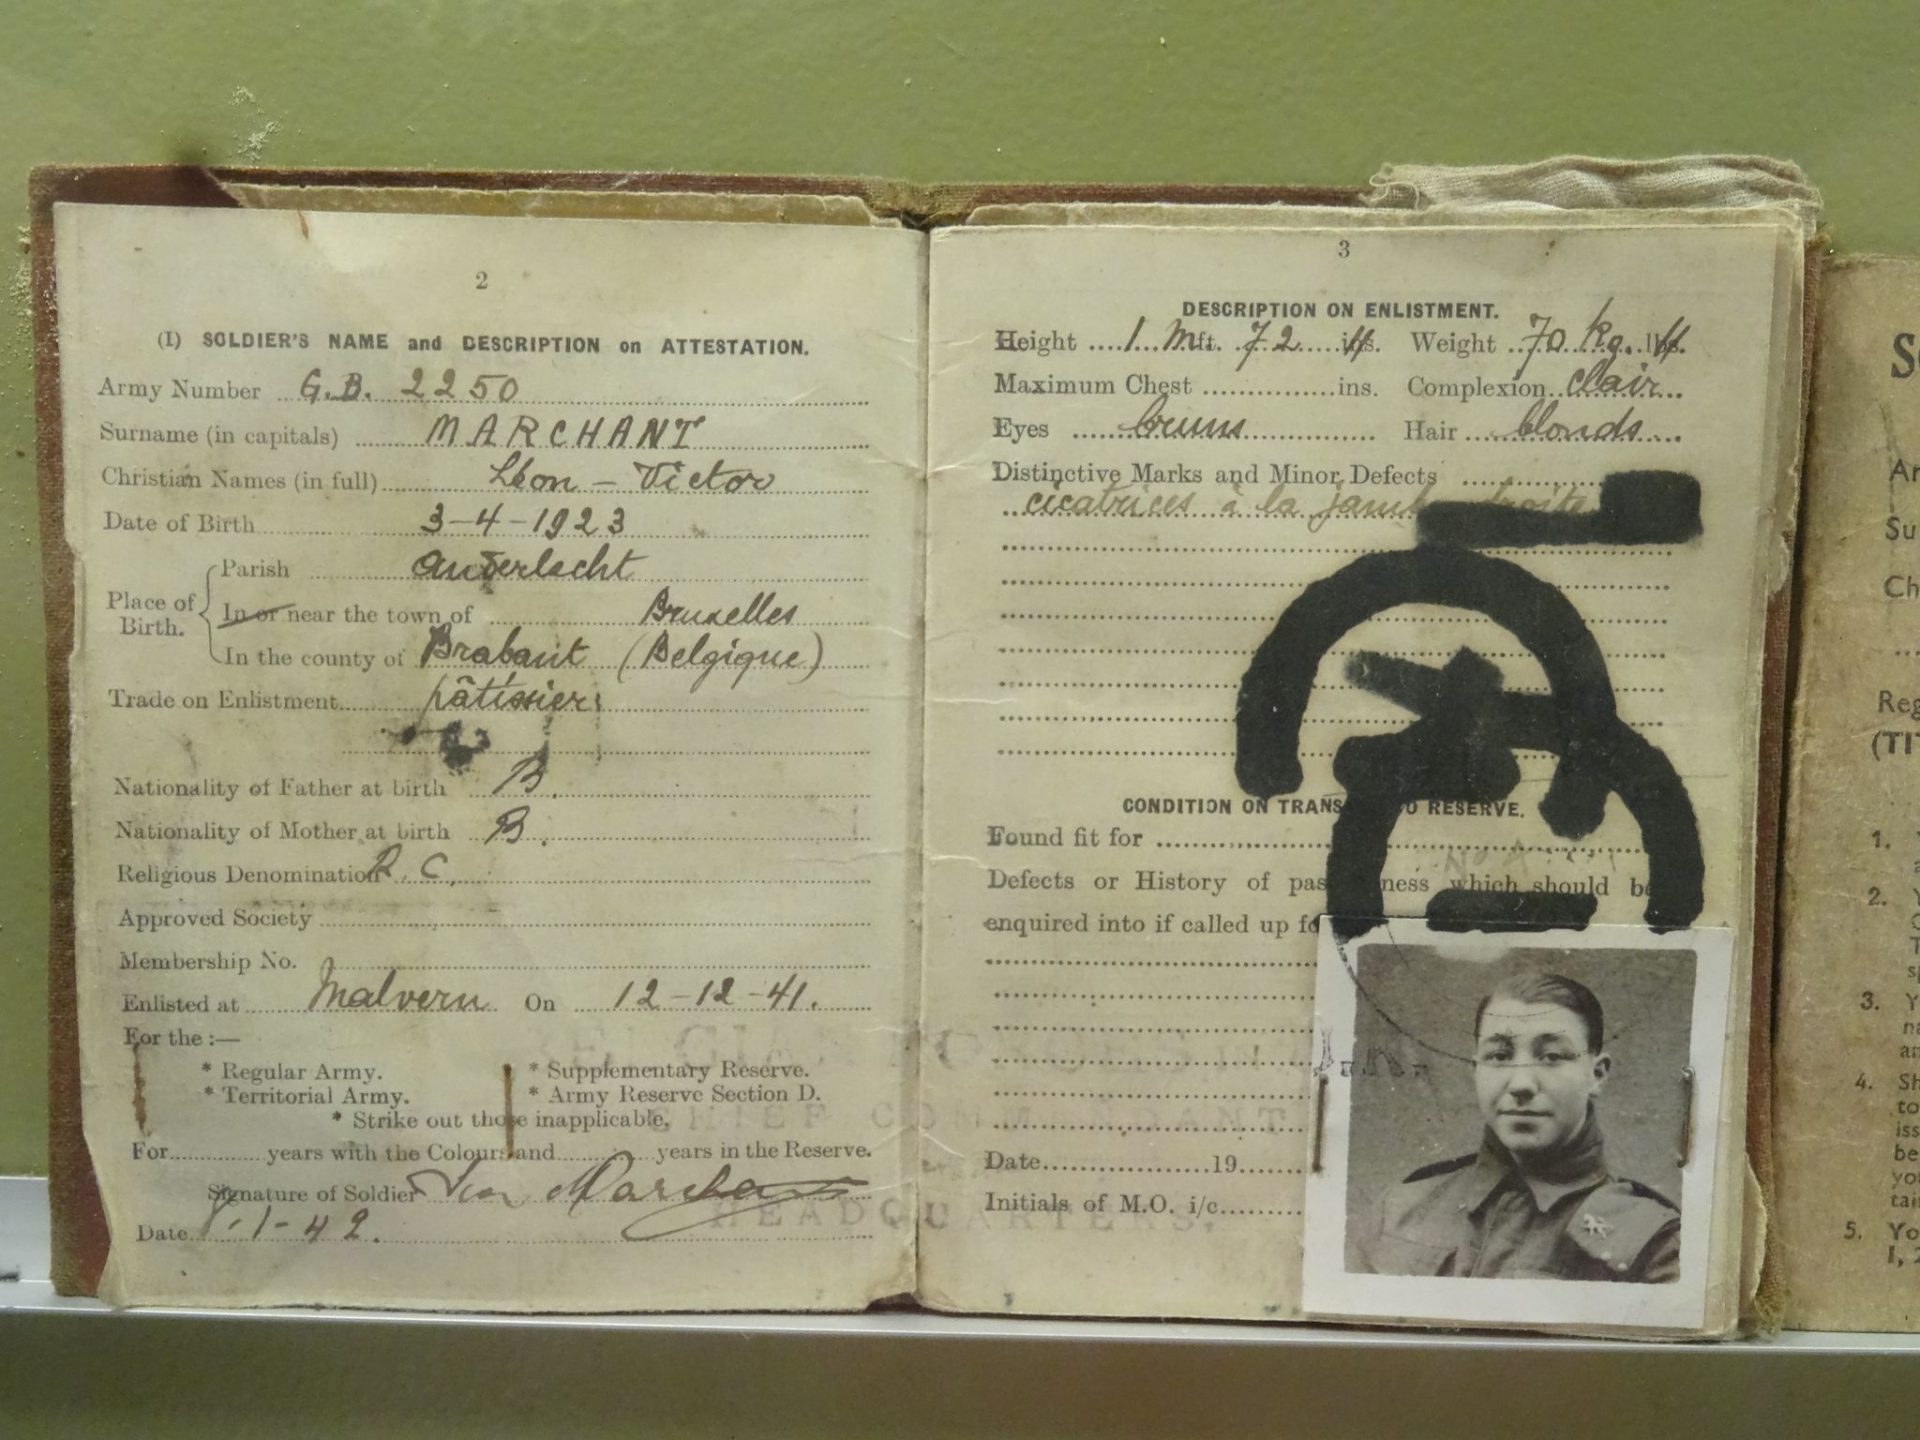 2
(I) SOLDIER'S NAME and DESCRIPTION on ATTESTATION.
Army Number G.B. 2250
Surname (in capitals) MARCHANT
Christian Names (in full) Léon - Victor
Date of Birth 3-4-1923
Place of Birth.
Parish Anderlecht
In or near the town of Bruxelles
In the county of Brabant (Belgique)
Trade on Enlistment pâtissier
Nationality of Father at birth B.
Nationality of Mother at birth B.
Religious Denomination R.C.
Approved Society
Membership No.
Enlisted at Malvern On 12-12-41.
For the :—
* Regular Army. * Supplementary Reserve.
* Territorial Army. * Army Reserve Section D.
* Strike out those inapplicable.
For years with the Colours and years in the Reserve.
Signature of Soldier
Date 1-42.
CHIEF
HEADQUARTERS.
3
DESCRIPTION ON ENLISTMENT.
Height 1 m ft. 72 ins. Weight 70 kg. lbs.
Maximum Chest ins. Complexion clair
Eyes bruns Hair blonds
Distinctive Marks and Minor Defects
cicatrices à la jambe droite
CONDITION ON TRANS O RESERVE.
Found fit for
Defects or History of pas ness which should b
enquired into if called up fo
Date 19
Initials of M.O. i/c
S
Ar
Su
Ch
Reg
(TI
1.
2.
3.
4. Sh
to
iss
be
yo
tai
5. Yo
1, 2